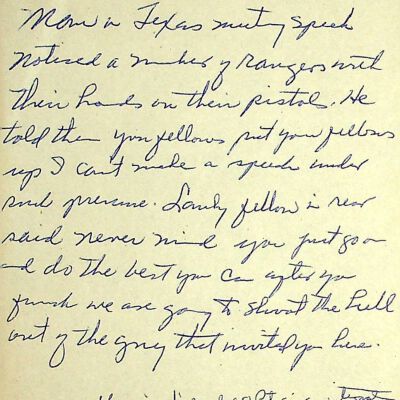 Man in Texas meeting speech
noticed a number of rangers with
their hands on their pistols. He
told them you fellows put your pistols
up I cant make a speech under
such pressure. Lanky fellow in rear
said never mind you just go on
and do the best you can after you
finish we are going to shoot the hell
out of the guy that invited you here.